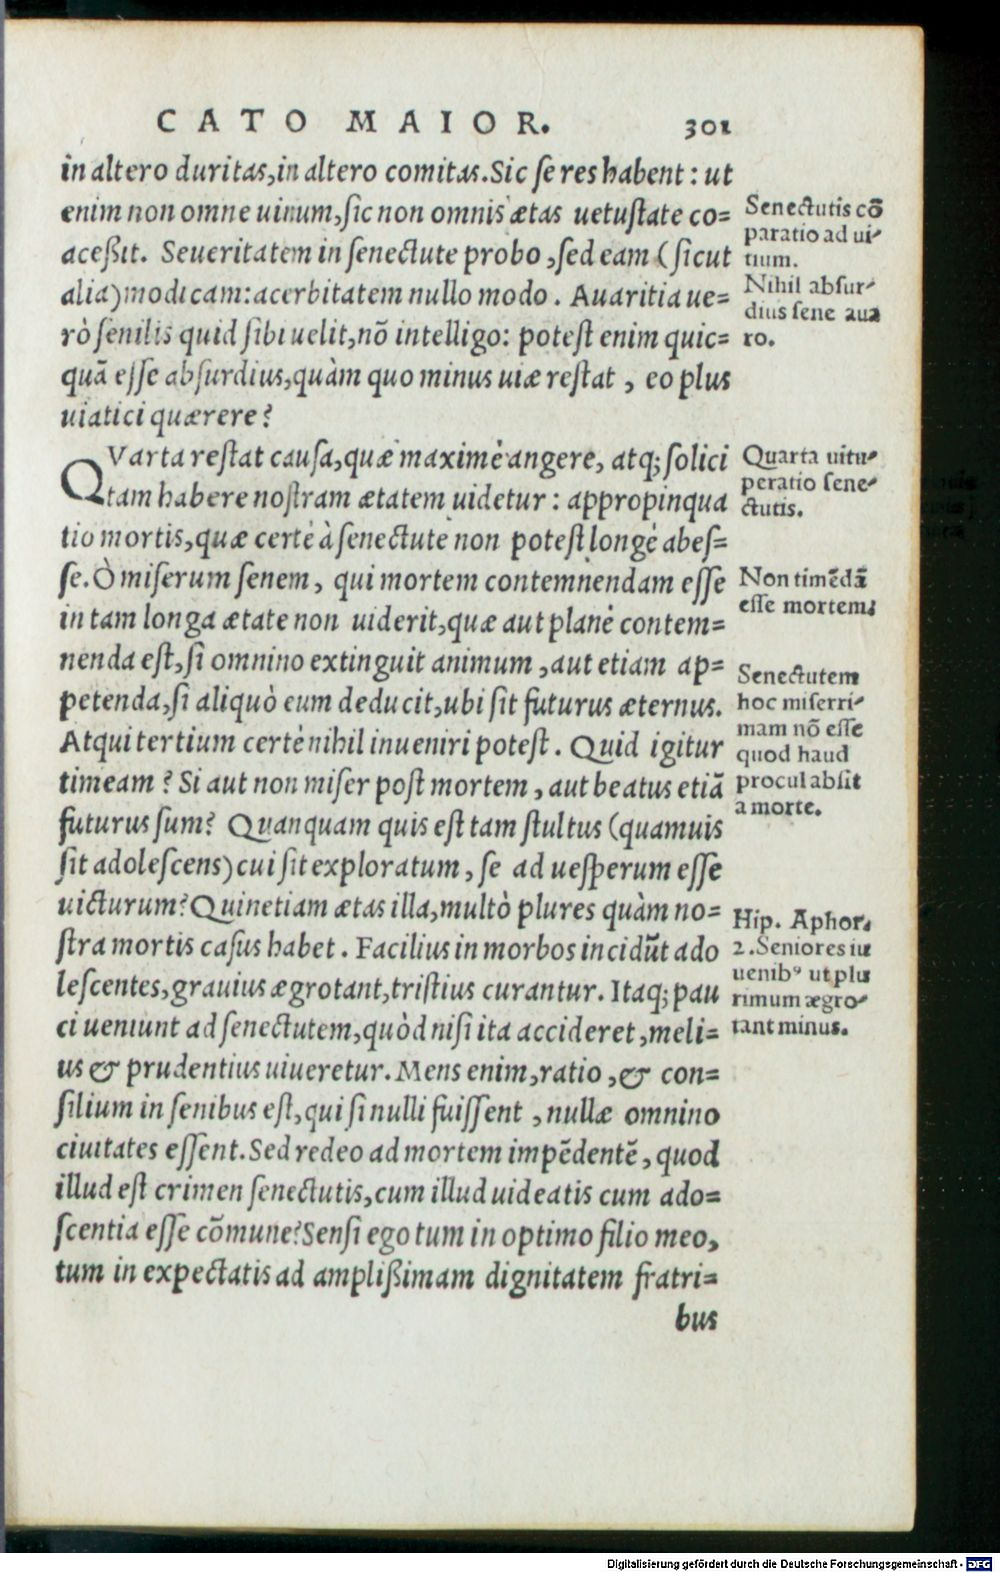 CATO MAIOR. 301
in altero duritas, in altero comitas. Sic ſe res habent: ut
enim non omne uinum, ſic non omnis ætas uetuſtate co=
aceßit. Seueritatem in ſenectute probo, ſed eam (ſicut
alia) modicam: acerbitatem nullo modo. Auaritia ue=
rò ſenilis quid ſibi uelit, nō intelligo: poteſt enim quic=
quā eſſe abſurdius, quàm quo minus uiæ reſtat, eo plus
uiatici quærere?
QVarta reſtat cauſa, quæ maximè angere, atq; ſolici
tam habere noſtram ætatem uidetur: appropinqua
tio mortis, quæ certè à ſenectute non poteſt longè abeſ=
ſe. Ò miſerum ſenem, qui mortem contemnendam eſſe
in tam longa ætate non uiderit, quæ aut planè contem=
nenda eſt, ſi omnino extinguit animum, aut etiam ap=
petenda, ſi aliquò eum deducit, ubi ſit futurus æternus.
Atqui tertium certè nihil inueniri poteſt. Quid igitur
timeam? Si aut non miſer poſt mortem, aut beatus etiā
futurus ſum? Quanquam quis eſt tam ſtultus (quamuis
ſit adoleſcens) cui ſit exploratum, ſe ad ueſperum eſſe
uicturum? Quinetiam ætas illa, multò plures quàm no=
ſtra mortis caſus habet. Facilius in morbos incidūt ado
leſcentes, grauius ægrotant, triſtius curantur. Itaq; pau
ci ueniunt ad ſenectutem, quòd niſi ita accideret, meli=
us & prudentius uiueretur. Mens enim, ratio, & con=
ſilium in ſenibus eſt, qui ſi nulli fuiſſent, nullæ omnino
ciuitates eſſent. Sed redeo ad mortem impēdentē, quod
illud eſt crimen ſenectutis, cum illud uideatis cum ado=
ſcentia eſſe cōmune? Senſi ego tum in optimo filio meo,
tum in expectatis ad amplißimam dignitatem fratri=
bus
Senectutis cō
paratio ad ui-
tium.
Nihil abſur-
dius ſene aua
ro.
Quarta uitu-
peratio ſene-
ctutis.
Non timēdā
eſſe mortem.
Senectutem
hoc miſerri-
mam nō eſſe
quod haud
procul abſit
a morte.
Hip. Aphor.
2. Seniores iu
uenibꝰ ut plu
rimum ægro-
tant minus.
Digitalisierung gefördert durch die Deutsche Forschungsgemeinschaft - DFG